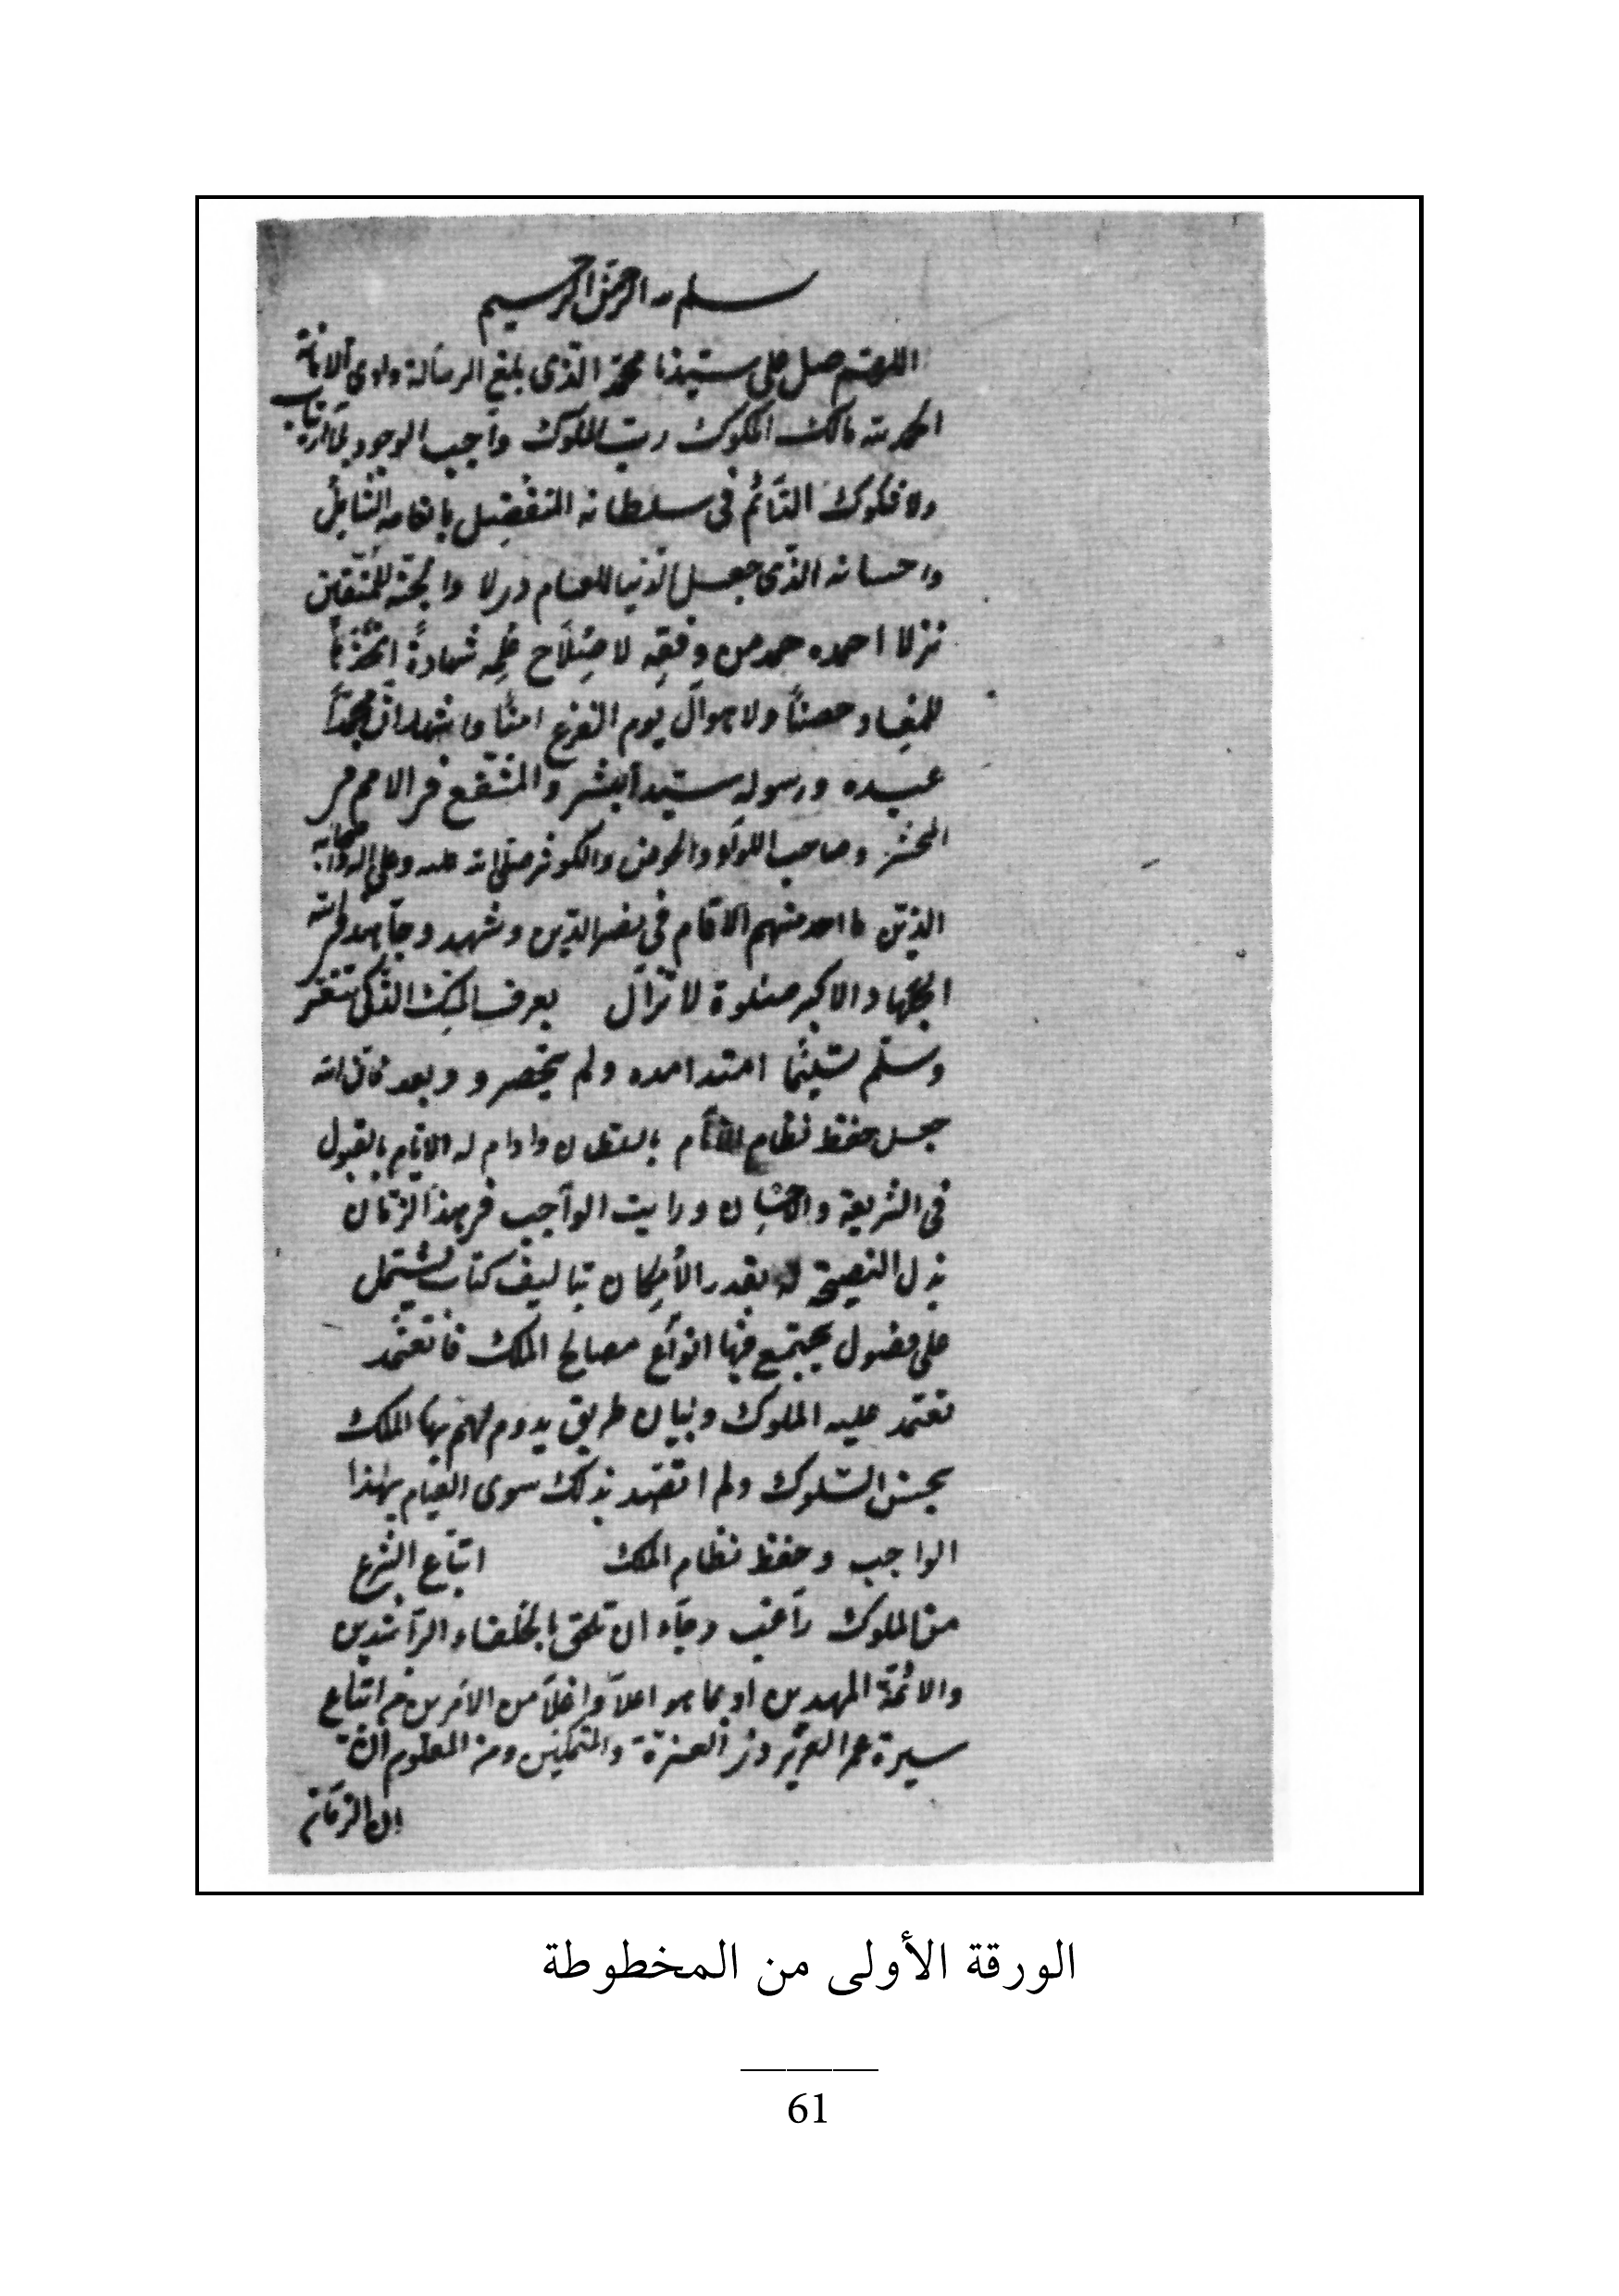 بسم الله الرحمن الرحيم
اللهم صل على سيدنا محمد الذى بلغ الرسالة وادى الامانة
الحمد لله مالك الملوك رب الملوك واجب الوجود
ولا فكوك الدائم فى سلطانه المتفضل بانعامه الشامل
واحسانه الذى جعل الدنيا للانام دارا والجنة للمتقين
نزلا احمده حمد من وفقه لاصلاح شهادة اتخذها
للمعاد حصنا ولاهوال يوم الفزع امنا واشهد ان محمدا
عبده ورسوله سيد البشر والمشفع فى الامم فى
المحشر وصاحب اللواء والحوض والكوثر صلى الله عليه وعلى اله واصحابه
الذين ما احد منهم الا قام فى نصر الدين وشهد وجاهد فى الله
الجهاد الاكبر صلوة لا تزال بعرف المسك الذكى
وسلم تسليما امتد امده ولم ينحصر وبعد فان الله
جعل حفظ نظام الانام بالسلطان وادام له الايام بالقبول
فى الشريعة والاحسان ورايت الواجب فى هذا الزمان
بذل النصيحة له بقدر الأمكان بتاليف كتاب يشتمل
على فصول يجتمع فيها انواع مصالح الملك فاتعتمد
تعتمد عليه الملوك وبيان طريق يدوم لهم بها الملك
بحسن السلوك ولم اقصد بذلك سوى القيام بهذا
الواجب وحفظ نظام الملك اتباع الشرع
من الملوك راغب رجاء ان تلحق بالخلفاء الراشدين
والائمة المهديين او بما هو اعلا واغلا من الامرين من اتباع
سيرة عمر العزيز والتمكين ومن المعلوم ان
ان الزمان
الورقة الأولى من المخطوطة
61